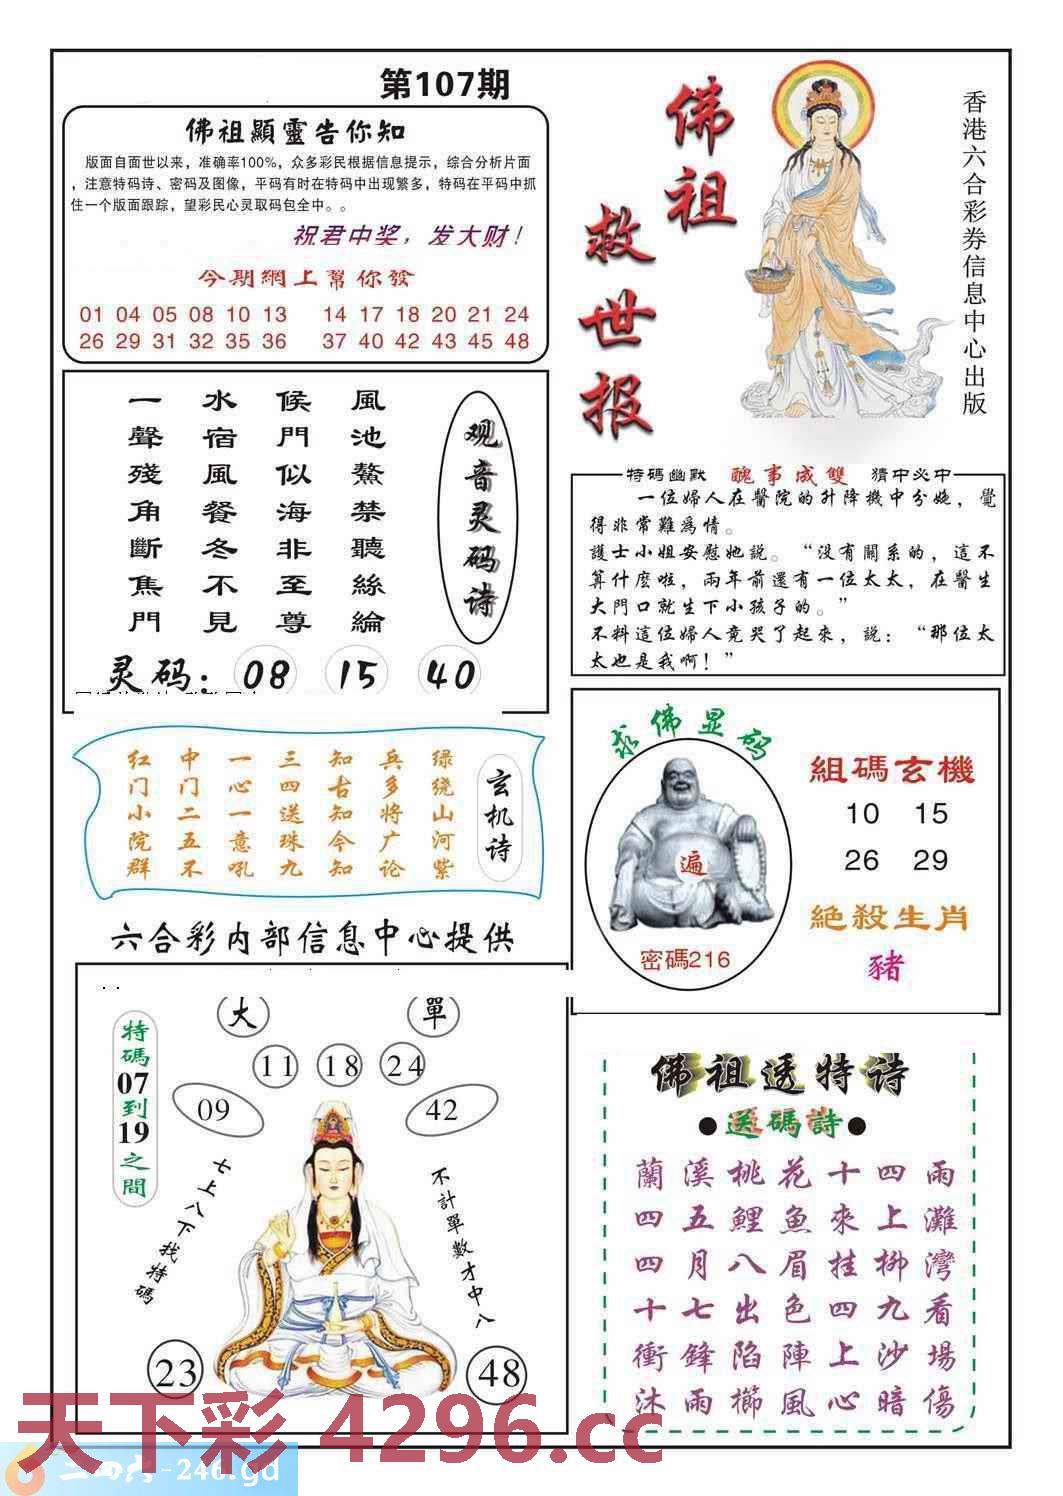 第107期
佛祖顯靈告你知
版面自面世以来，准确率100%，众多彩民根据信息提示，综合分析片面
，注意特码诗、密码及图像，平码有时在特码中出现繁多，特码在平码中抓
住一个版面跟踪，望彩民心灵取码包全中。。
祝君中奖，发大财！
今期網上幫你發
01 04 05 08 10 13 14 17 18 20 21 24
26 29 31 32 35 36 37 40 42 43 45 48
佛祖
救世报
香港六合彩券信息中心出版
观音灵码诗
風池鰲禁聽絲綸
候門似海非至尊
水宿風餐冬不見
一聲殘角斷焦門
灵码：08 15 40
特碼幽默 醜事成雙 猜中必中
一位婦人在醫院的升降機中分娩，覺
得非常難爲情。
護士小姐安慰她說。“没有關系的，這不
算什麼啦，兩年前還有一位太太，在醫生
大門口就生下小孩子的。”
不料這位婦人竟哭了起來，説：“那位太
太也是我啊！”
玄机诗
绿绕山河紫
兵多将广论
知古知今知
三四送珠九
一心一意吼
中门二五不
红门小院群
求佛显码
遍
密碼216
組碼玄機
10 15
26 29
絶殺生肖
豬
六合彩内部信息中心提供
特碼07到19之間
大 單
11 18 24
09 42
七上八下找特碼
不計單數才中八
23 48
佛祖透特诗
●送碼詩●
蘭溪桃花十四雨
四五鯉魚來上灘
四月八眉挂柳灣
十七出色四九看
衝鋒陷陣上沙場
沐雨櫛風心暗傷
天下彩 4296.cc
二四六-246.gd